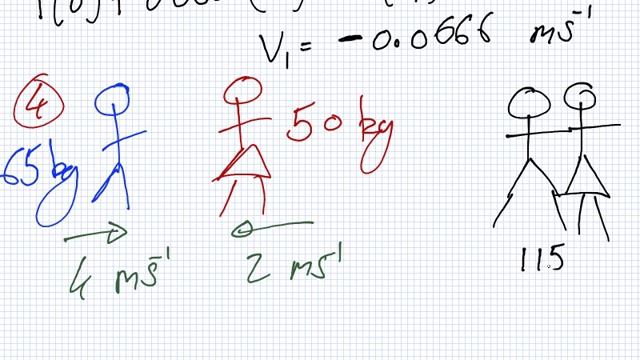 V₁ = -0.0666 ms⁻¹
4
65kg
50kg
4 ms⁻¹
2 ms⁻¹
115